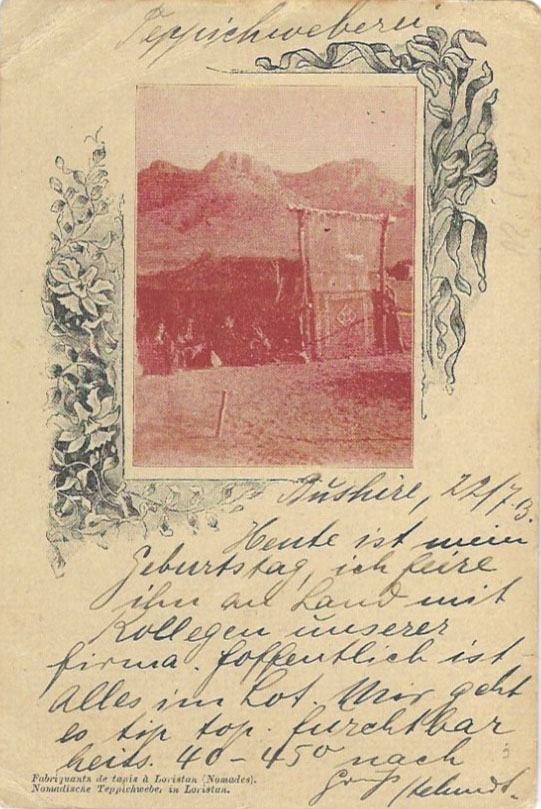 Teppichweberei
Bushire, 22/7.13.
Heute ist mein
Geburtstag, ich feire
ihn an Land mit
Kollegen unserer
firma. Hoffentlich ist
alles im Lot. Mir geht
es tip top. furchtbar
heiss. 40-45° noch
Gruss
Fabriquants de tapis à Loristan (Nomades).
Nomadische Teppichweber in Loristan.